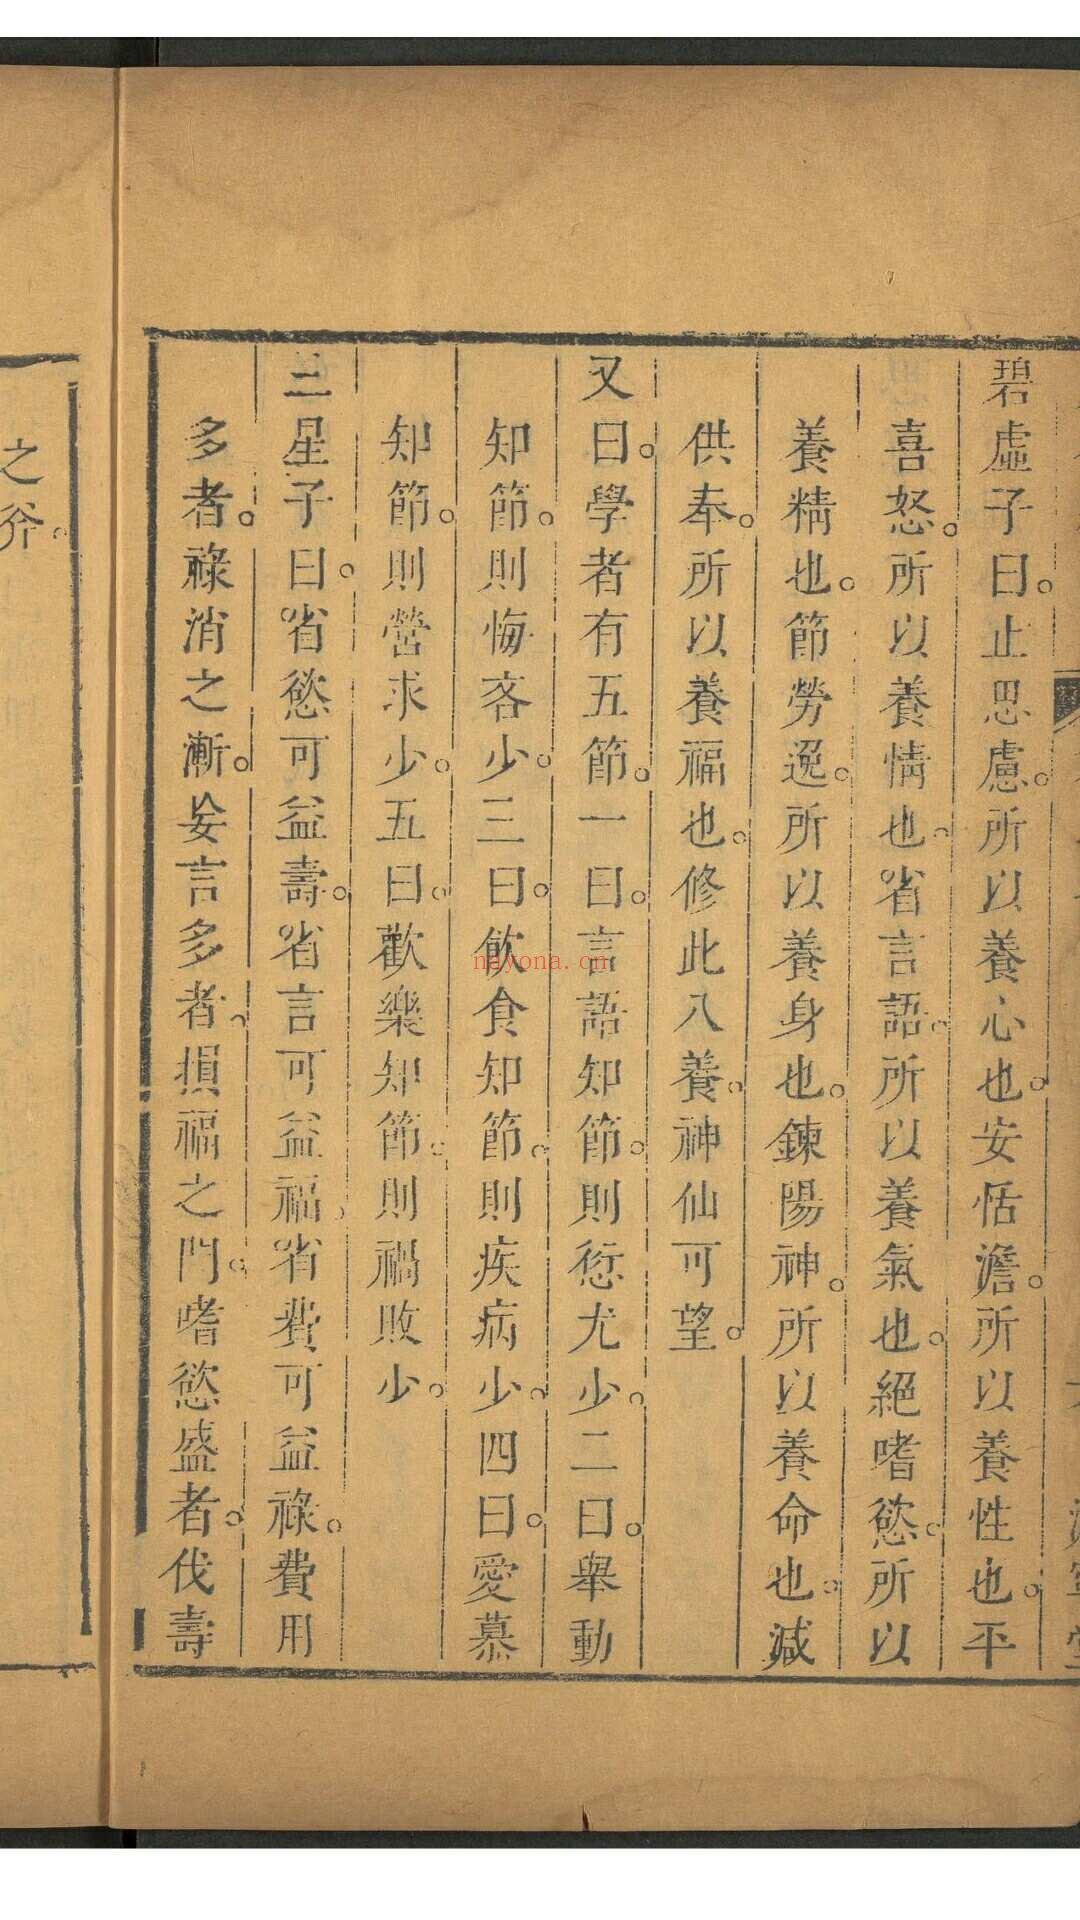 碧虛子曰止思慮所以養心也安恬澹所以養性也平
喜怒所以養情也省言語所以養氣也絕嗜慾所以
養精也節勞逸所以養身也鍊陽神所以養命也減
供奉所以養福也修此八養神仙可望
又曰學者有五節一曰言語知節則愆尤少二曰舉動
知節則悔吝少三曰飲食知節則疾病少四曰愛慕
知節則營求少五曰歡樂知節則禍敗少
三星子曰省慾可益壽省言可益福省費可益祿費用
多者祿消之漸妄言多者損福之門嗜慾盛者伐壽
之斧
nayona.cn